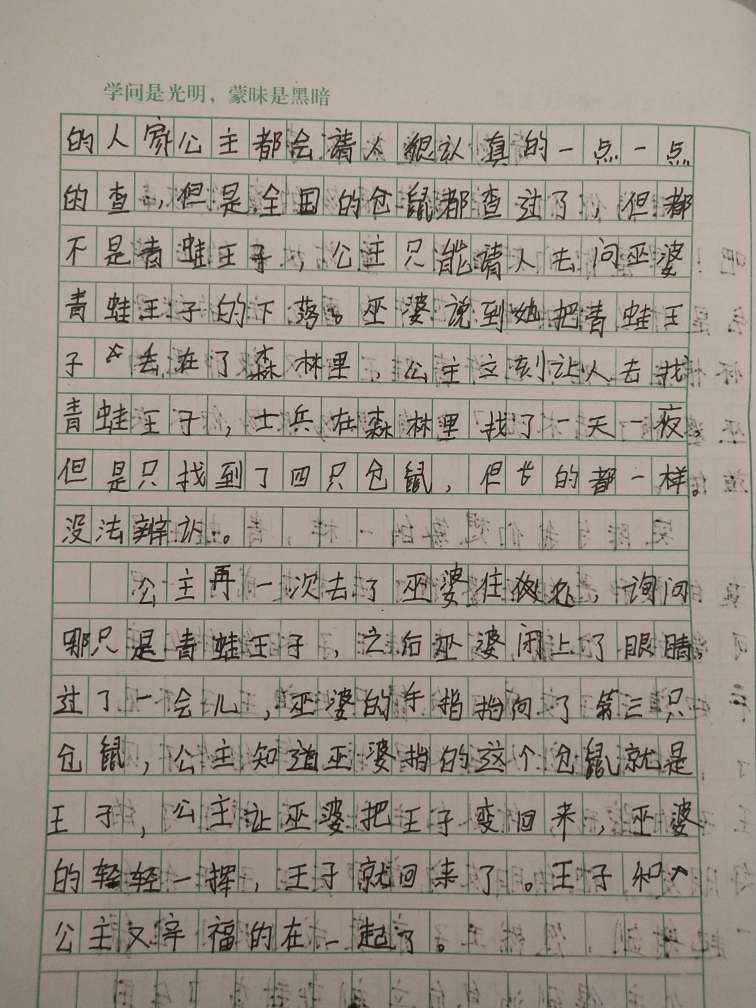 学问是光明，蒙昧是黑暗
的人家公主都会请人很认真的一点一点
的查，但是全国的仓鼠都查过了，但都
不是青蛙王子，公主只能请人去问巫婆
青蛙王子的下落。巫婆说到她把青蛙王
子丢在了森林里，公主立刻让人去找
青蛙王子，士兵在森林里找了一天一夜，
但是只找到了四只仓鼠，但长的都一样。
没法辨认。
公主再一次去了巫婆住，询问
哪只是青蛙王子，之后巫婆闭上了眼睛，
过了一会儿，巫婆的手指指向了第三只
仓鼠，公主知道巫婆指的这个仓鼠就是
王子，公主让巫婆把王子变回来，巫婆
的轻轻一挥，王子就回来了。王子和
公主又幸福的在一起了。